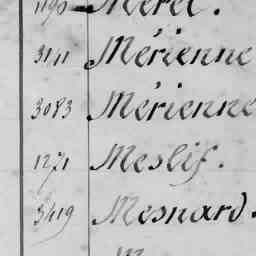 1190 Merel.
3141 Mérienne
3083 Mérienne
1271 Meslif.
3419 Mesnard.